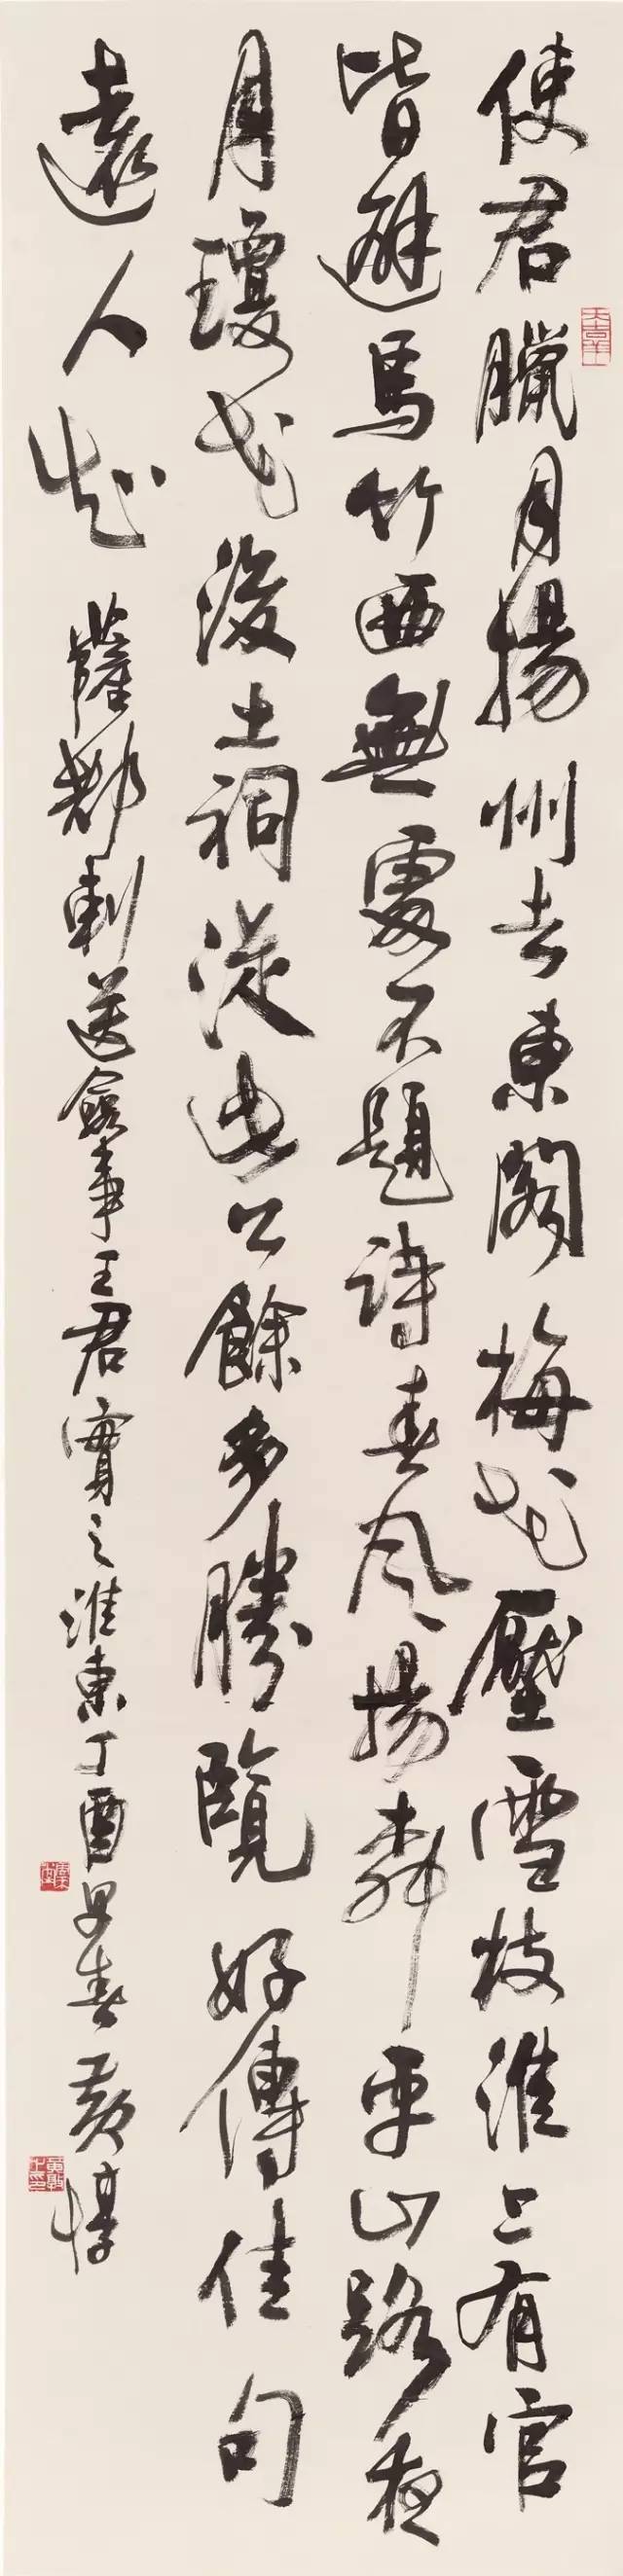 使君臘月揚州去東閣梅花壓雪枝淮上有官
皆避馬竹西無處不題詩春風楊柳平山路夜
月瓊花後土祠從此公餘多勝覽好傳佳句
遠人
薩都剌送僉事王君實之淮東丁酉早春黃惇